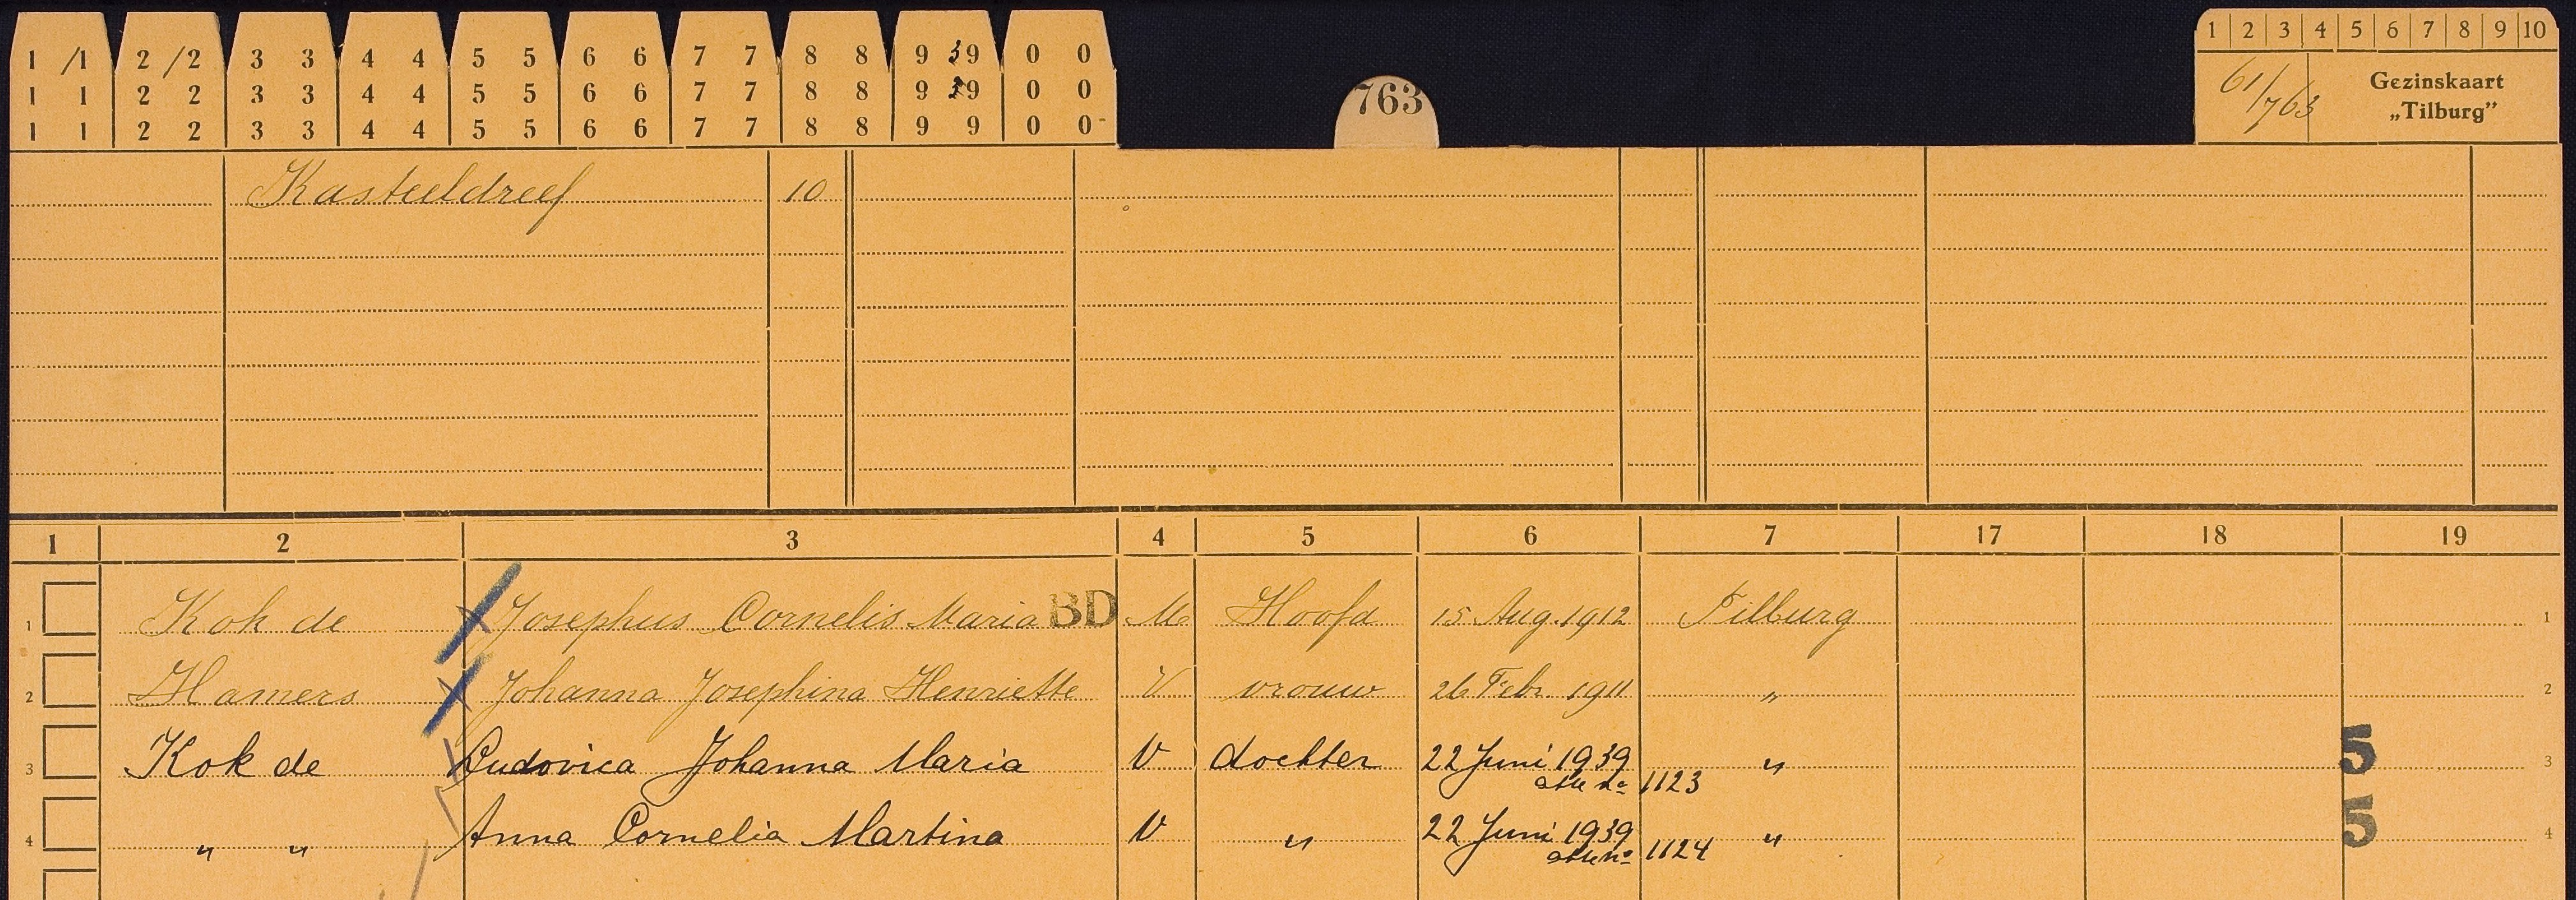 1 /1 2 /2 3 3 4 4 5 5 6 6 7 7 8 8 9 39 0 0
1 1 2 2 3 3 4 4 5 5 6 6 7 7 8 8 9 9 0 0
1 1 2 2 3 3 4 4 5 5 6 6 7 7 8 8 9 9 0 0
763
1 2 3 4 5 6 7 8 9 10
61/763
Gezinskaart
„Tilburg”
Kasteeldreef 10
1 2 3 4 5 6 7 17 18 19
1 Kok de Josephus Cornelis Maria BD M Hoofd 15 Aug. 1912 Tilburg 1
2 Hamers Johanna Josephina Henriette V vrouw 26 Febr. 1911 " 2
3 Kok de Ludovica Johanna Maria V dochter 22 Juni 1939 " 5 3
akte no 1123
4 " " Anna Cornelia Martina V " 22 Juni 1939 " 5 4
akte no 1124